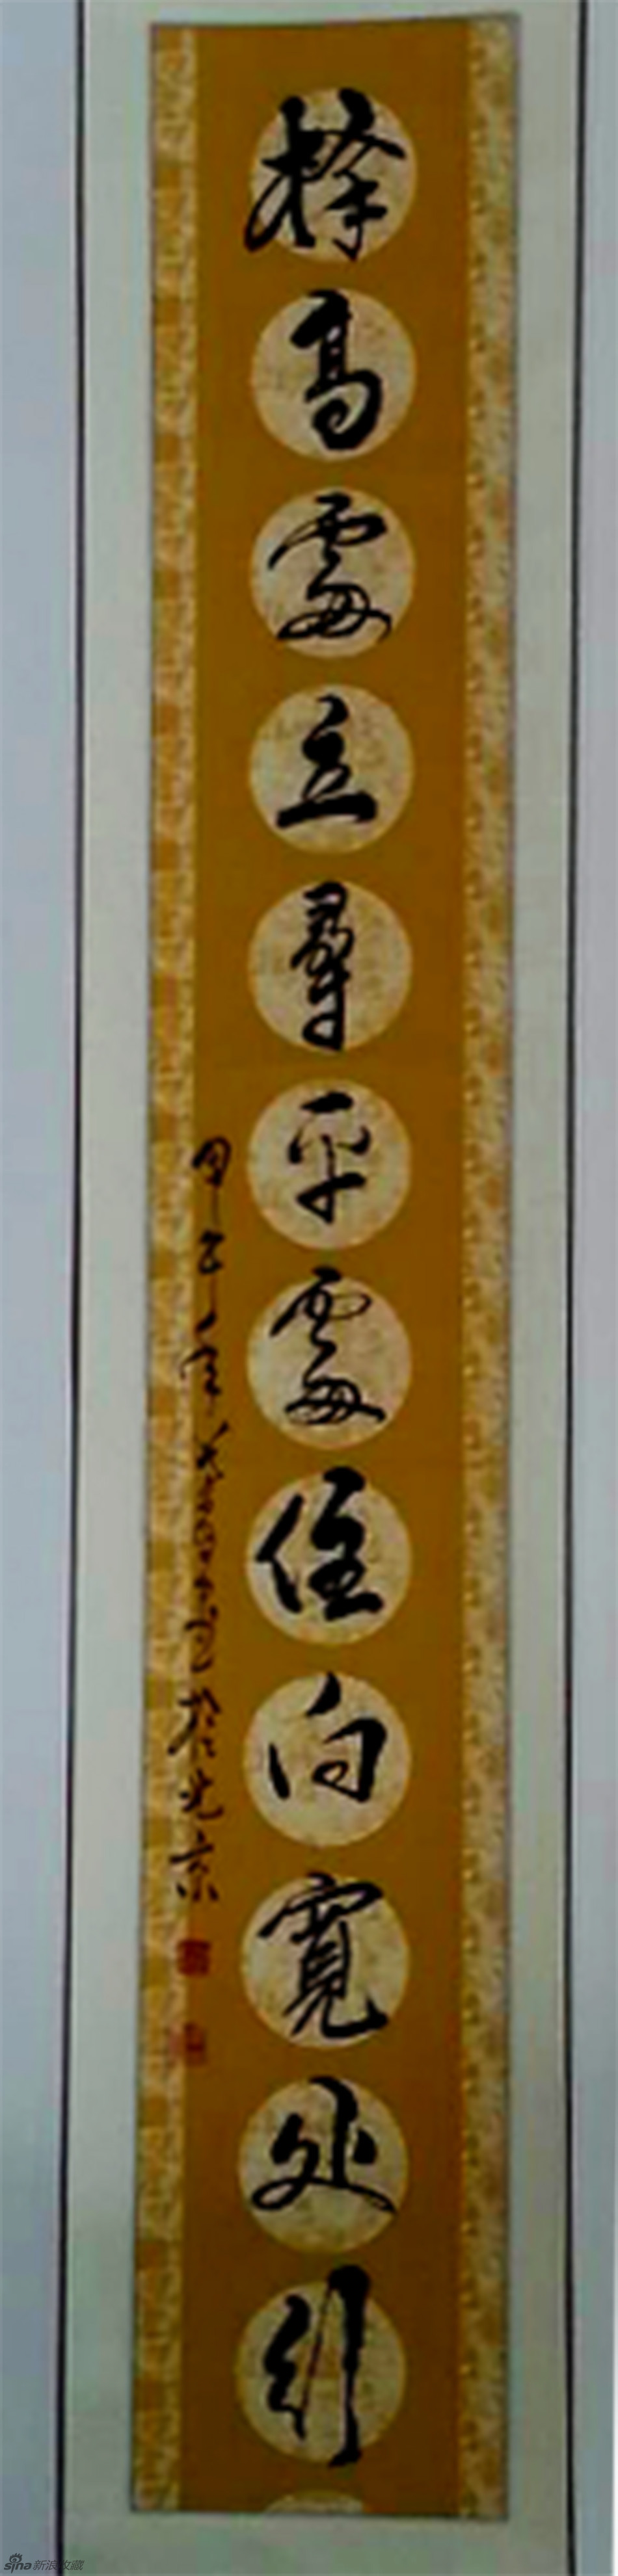 择高處立寻平處住向寬处行
甲午年
於北京
sina新浪收藏